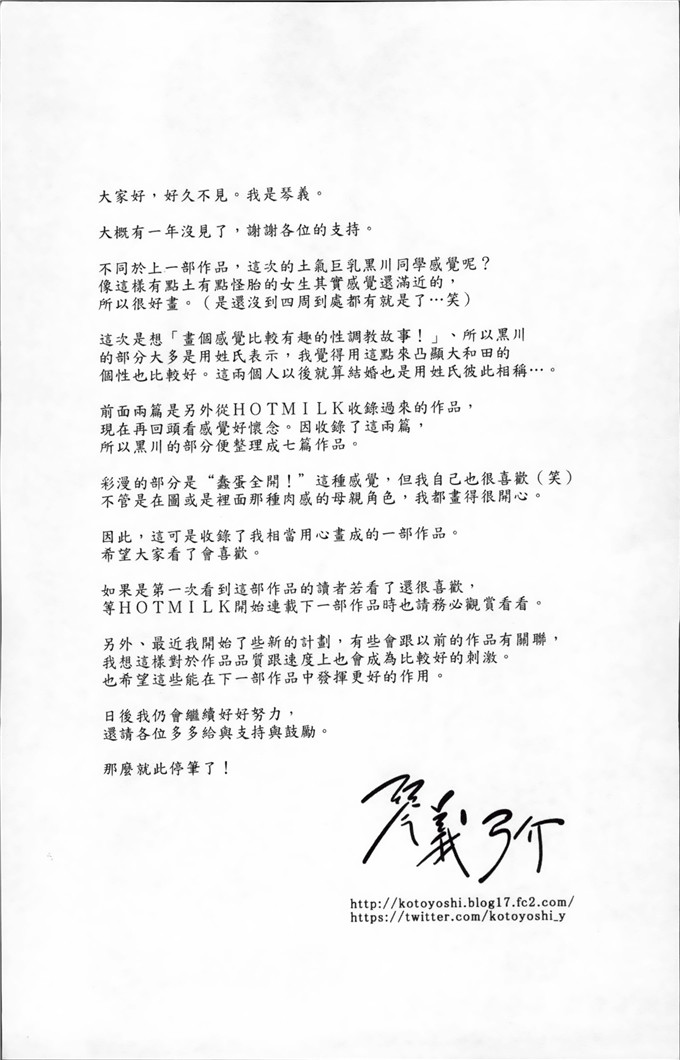 大家好，好久不見。我是琴義。
大概有一年沒見了，謝謝各位的支持。
不同於上一部作品，這次的土氣巨乳黑川同學感覺呢？
像這樣有點土有點怪胎的女生其實感覺還滿近的，
所以很好畫。（是還沒到四周到處都有就是了…笑）
這次是想「畫個感覺比較有趣的性調教故事！」、所以黑川
的部分大多是用姓氏表示，我覺得用這點來凸顯大和田的
個性也比較好。這兩個人以後就算結婚也是用姓氏彼此相稱…。
前面兩篇是另外從HOTMILK收錄過來的作品，
現在再回頭看感覺好懷念。因收錄了這兩篇，
所以黑川的部分便整理成七篇作品。
彩漫的部分是“蠢蛋全開！”這種感覺，但我自己也很喜歡（笑）
不管是在圖或是裡面那種肉感的母親角色，我都畫得很開心。
因此，這可是收錄了我相當用心畫成的一部作品。
希望大家看了會喜歡。
如果是第一次看到這部作品的讀者若看了還很喜歡，
等HOTMILK開始連載下一部作品時也請務必觀賞看看。
另外、最近我開始了些新的計劃，有些會跟以前的作品有關聯，
我想這樣對於作品品質跟速度上也會成為比較好的刺激。
也希望這些能在下一部作品中發揮更好的作用。
日後我仍會繼續好好努力，
還請各位多多給與支持與鼓勵。
那麼就此停筆了！
琴義弓介
http://kotoyoshi.blog17.fc2.com/
https://twitter.com/kotoyoshi_y